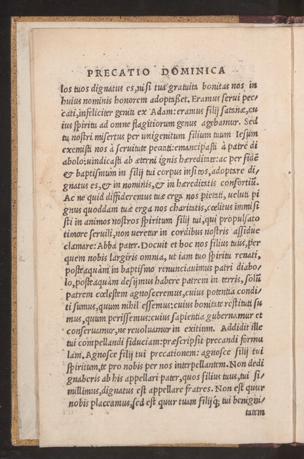 PRECATIO DOMINICA
los tuos dignatus es, nisi tua gratuita bonitas nos in
huius nominis honorem adoptasset. Eramus serui pec
cati, infeliciter geniti ex Adam: eramus filij satanæ, cu
ius spiritu ad omne flagitiorum genus agebamur. Sed
tu nostri misertus per unigenitum filium tuum Iesum
exemisti nos à seruitute peccati: emancipasti à patre di
abolo: uindicasti ab æterni ignis hæreditate: ac per fidẽ
& baptismum in filij tui corpus insitos, adoptare di‐
gnatus es, & in nominis, & in hæreditatis consortiũ.
Ac ne quid diffideremus tuæ erga nos pietati, uelut pi
gnus quoddam tuæ erga nos charitatis, cœlitus immisi
sti in animos nostros spiritum filij tui, qui propulsato
timore seruili, non ueretur in cordibus nostris assidue
clamare: Abba pater. Docuit et hoc nos filius tuus, per
quem nobis largiris omnia, ut iam tuo spiritu renati,
posteaquàm in baptismo renunciauimus patri diabo‐
lo, posteaquàm desijmus habere patrem in terris, solũ
patrem cœlestem agnosceremus, cuius potentia condi/
ti sumus, quum nihil essemus: cuius bonitate restituti su
mus, quum perissemus: cuius sapientia gubernamur et
conseruamur, ne reuoluamur in exitium. Addidit ille
tui compellandi fiduciam: præscripsit precandi formu
lam, Agnosce filij tui precationem: agnosce filij tui
spiritum, te pro nobis per nos interpellantem. Non dedi
gnaberis ab his appellari pater, quos filius tuus, tui si‐
millimus, dignatus est appellare fratres. Non est quur
nobis placeamus, sed est quur tuam filijq́; tui benigni‐
tatem